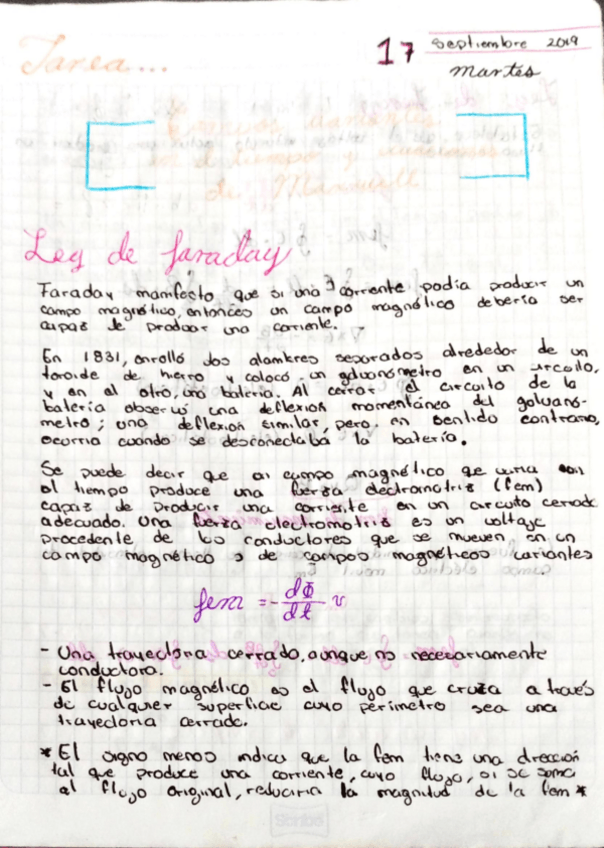 Tarea...
17 septiembre 2019
Martes
variantes
en el tiempo y ecuaciones
de Maxwell
Ley de faraday
Faraday manifesto que si una corriente podía producir un
campo magnético, entonces un campo magnético debería ser
capas de producir una corriente.
En 1831, enrolló dos alambres separados alrededor de un
toroide de hierro y colocó un galvanómetro en un circuito,
y en el otro, una batería. Al cerrar el circuito de la
batería observó una deflexión momentánea del galvanó-
metro; una deflexión similar, pero en sentido contrario,
ocurria cuando se desconectaba la batería.
Se puede decir que un campo magnético que varia con
el tiempo produce una fuerza electromotris (fem)
capas de producir una corriente en un circuito cerrado
adecuado. Una fuerza electromotris es un voltaje
procedente de los conductores que se mueven en un
campo magnético o de campos magnéticos variantes
fem = - dΦ/dt v
- Una trayectoria cerrado, aunque no necesariamente
conductora.
- El flujo magnético es el flujo que cruza a través
de cualquier superficie cuyo perímetro sea una
trayectoria cerrado.
* El signo menos indica que la fem tiene una dirección
tal que produce una corriente, cuyo flujo, si se suma
al flujo original, reduciría la magnitud de la fem *
Scribe